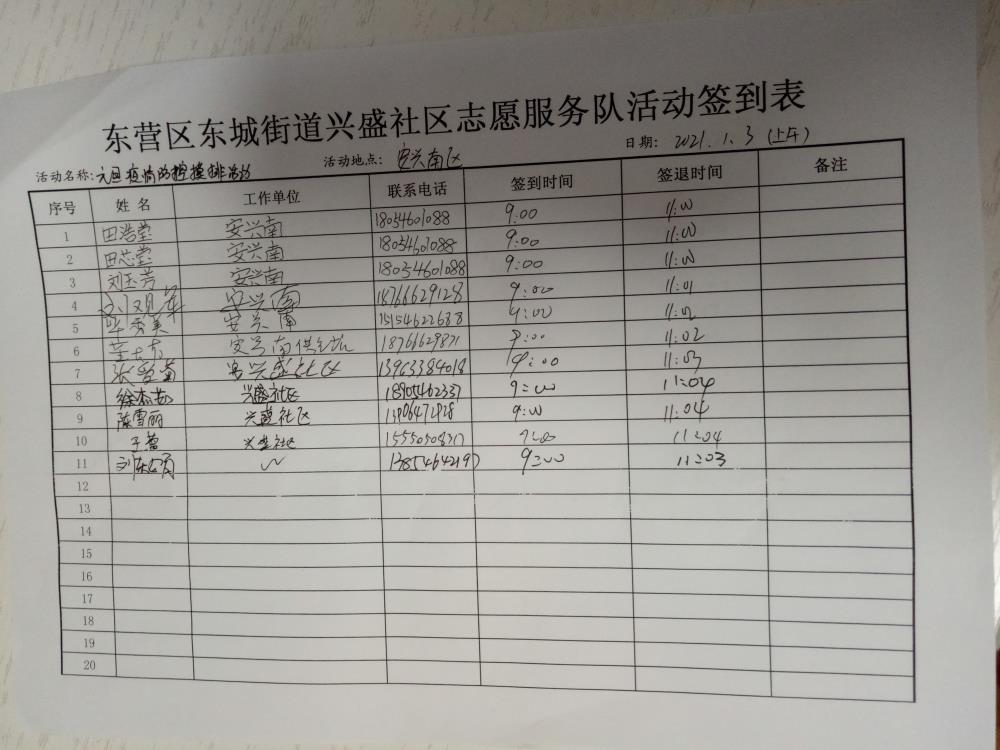 东营区东城街道兴盛社区志愿服务队活动签到表
活动名称:元旦疫情防控摸排活动 活动地点: 安兴南区 日期: 2021.1.3 (上午)
序号 姓名 工作单位 联系电话 签到时间 签退时间 备注
1 田浩莹 安兴南 18054601088 9:00 11:00
2 田芯莹 安兴南 18054601088 9:00 11:00
3 刘玉芳 安兴南 18054601088 9:00 11:00
4 安兴南 18766629128 9:00 11:01
5 毕秀美 安兴南 15154622688 9:00 11:02
6 安兴南 18761629871 9:00 11:02
7 安兴盛社区 13963384018 9:00 11:03
8 徐杰 兴盛社区 18905462337 9:00 11:04
9 陈雪丽 兴盛社区 9:00 11:04
10 于蕾 兴盛社区 15550508317 9:00 11:04
11 刘东 13854642197 9:00 11:03
12
13
14
15
16
17
18
19
20